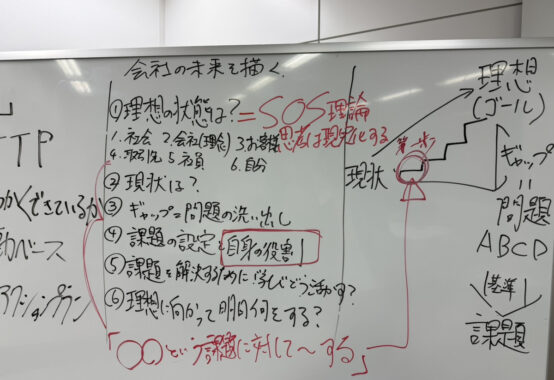 TP
つかくできているか
動ベース
アクションプラン
会社の未来を描く
①理想の状態は?=SOS理論
思考は現実化する
1.社会 2.会社(理念) 3.お客様
4.取引先 5.社員 6.自分
②現状は?
③ギャップ=問題の洗い出し
④課題の設定と自身の役割
⑤課題を解決するために学びどう活かす?
⑥理想に向かって明日何をする?
「〇〇という課題に対して〜する」
理想
(ゴール)
第一歩
現状
ギャップ
=
問題
ABCD
基準
課題